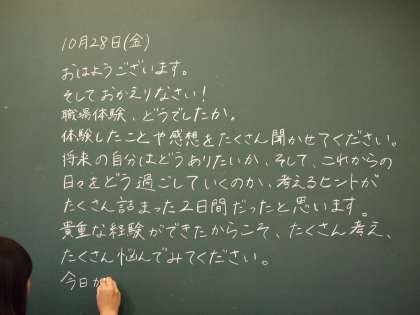 10月28日(金)
おはようございます。
そしておかえりなさい!
職場体験、どうでしたか。
体験したことや感想をたくさん聞かせてください。
将来の自分はどうありたいか、そして、これからの
日々をどう過ごしていくのか、考えるヒントが
たくさん詰まった2日間だったと思います。
貴重な経験ができたからこそ、たくさん考え、
たくさん悩んでみてください。
今日か